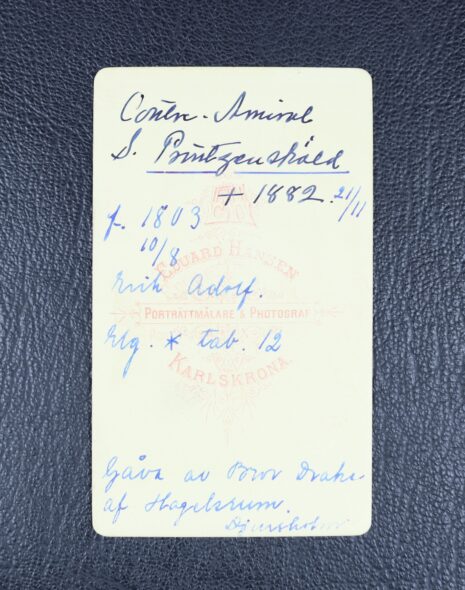 Contre-Amiral
S. Printzensköld
+ 1882. 21/11
f. 1803
10/8
EDUARD HANSEN
Erik Adolf.
PORTRÄTTMÅLARE & PHOTOGRAF
Elg. * tab. 12
KARLSKRONA.
Gåva av Bror Drake
af Hagelsrum.